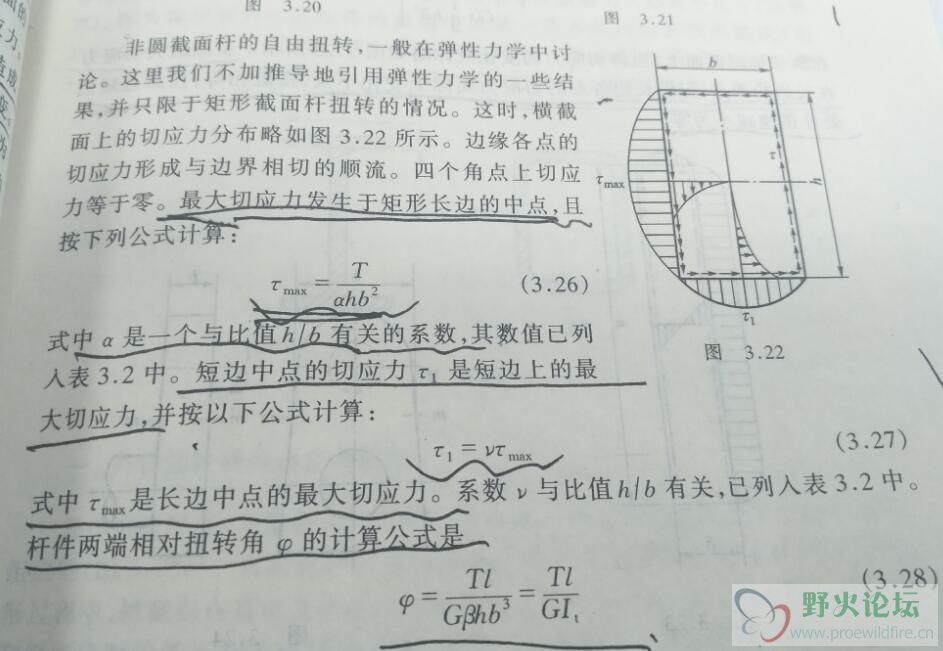 图 3.20
图 3.21
非圆截面杆的自由扭转，一般在弹性力学中讨
论。这里我们不加推导地引用弹性力学的一些结
果，并只限于矩形截面杆扭转的情况。这时，横截
面上的切应力分布略如图 3.22 所示。边缘各点的
切应力形成与边界相切的顺流。四个角点上切应
力等于零。最大切应力发生于矩形长边的中点，且
按下列公式计算：
τmax = T / αhb² (3.26)
b
τ
h
τmax
τ1
图 3.22
式中 α 是一个与比值 h/b 有关的系数，其数值已列
入表 3.2 中。短边中点的切应力 τ1 是短边上的最
大切应力，并按以下公式计算：
τ1 = ντmax (3.27)
式中 τmax 是长边中点的最大切应力。系数 ν 与比值 h/b 有关，已列入表 3.2 中。
杆件两端相对扭转角 φ 的计算公式是
φ = Tl / Gβhb³ = Tl / GIt (3.28)
野火论坛
www.proewildfire.cn